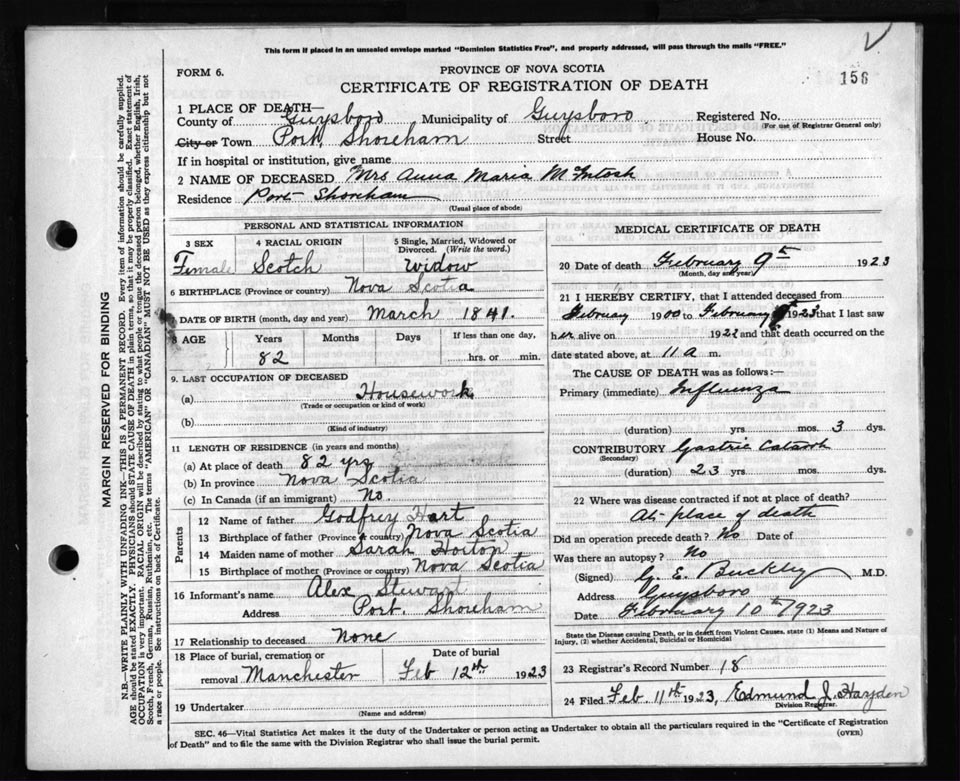 This form if placed in an unsealed envelope marked "Dominion Statistics Free", and properly addressed, will pass through the mails "FREE."
FORM 6.
PROVINCE OF NOVA SCOTIA
156
CERTIFICATE OF REGISTRATION OF DEATH
1 PLACE OF DEATH—
County of Guysboro Municipality of Guysboro Registered No.
(For use of Registrar General only)
City or Town Port Shoreham Street House No.
If in hospital or institution, give name
2 NAME OF DECEASED Mrs Anna Maria McIntosh
Residence Port Shoreham
(Usual place of abode)
PERSONAL AND STATISTICAL INFORMATION
3 SEX 4 RACIAL ORIGIN 5 Single, Married, Widowed or Divorced. (Write the word.)
Female Scotch Widow
6 BIRTHPLACE (Province or country) Nova Scotia
7 DATE OF BIRTH (month, day and year) March 1841.
8 AGE Years Months Days If less than one day,
82 hrs. or min.
9. LAST OCCUPATION OF DECEASED
(a) Housework
(Trade or occupation or kind of work)
(b)
(Kind of industry)
11 LENGTH OF RESIDENCE (in years and months)
(a) At place of death 82 yrs
(b) In province Nova Scotia
(c) In Canada (if an immigrant) No
Parents
12 Name of father Godfrey Hart
13 Birthplace of father (Province or country) Nova Scotia
14 Maiden name of mother Sarah Horton
15 Birthplace of mother (Province or country) Nova Scotia
16 Informant's name Alex Stewart
Address Port. Shoreham
17 Relationship to deceased None
18 Place of burial, cremation or removal Manchester
Date of burial Feb 12th 1923
19 Undertaker
(Name and address)
MEDICAL CERTIFICATE OF DEATH
20 Date of death February 9th 1923
(Month, day and year)
21 I HEREBY CERTIFY, that I attended deceased from
February 1900 to February 1923 that I last saw
her alive on 1922 and that death occurred on the
date stated above, at 11 a m.
The CAUSE OF DEATH was as follows:—
Primary (immediate) Influenza
(duration) yrs mos. 3 dys.
CONTRIBUTORY Gastric Catarrh
(Secondary)
(duration) 23 yrs mos. dys.
22 Where was disease contracted if not at place of death?
At place of death
Did an operation precede death? No Date of
Was there an autopsy? No
(Signed) G. E. Buckley M.D.
Address Guysboro
Date February 10th 1923
State the Disease causing Death, or in death from Violent Causes, state (1) Means and Nature of Injury, (2) whether Accidental, Suicidal or Homicidal
23 Registrar's Record Number 18
24 Filed Feb 11th 1923, Edmund J. Hayden
Division Registrar.
SEC. 46—Vital Statistics Act makes it the duty of the Undertaker or person acting as Undertaker to obtain all the particulars required in the "Certificate of Registration
of Death" and to file the same with the Division Registrar who shall issue the burial permit.
(OVER)
MARGIN RESERVED FOR BINDING
N.B.—WRITE PLAINLY WITH UNFADING INK—THIS IS A PERMANENT RECORD. Every item of information should be carefully supplied.
AGE should be stated EXACTLY. PHYSICIANS should STATE CAUSE OF DEATH in plain terms, so that it may be properly classified. Exact statement of
OCCUPATION is very important. RACIAL ORIGIN will be described by stating to what people or tongue the deceased person belonged, whether English, Irish,
Scotch, French, German, Russian, Ruthenian, etc. The terms "AMERICAN" or "CANADIAN" MUST NOT BE USED as they express citizenship but not
a race or people. See instructions on back of Certificate.